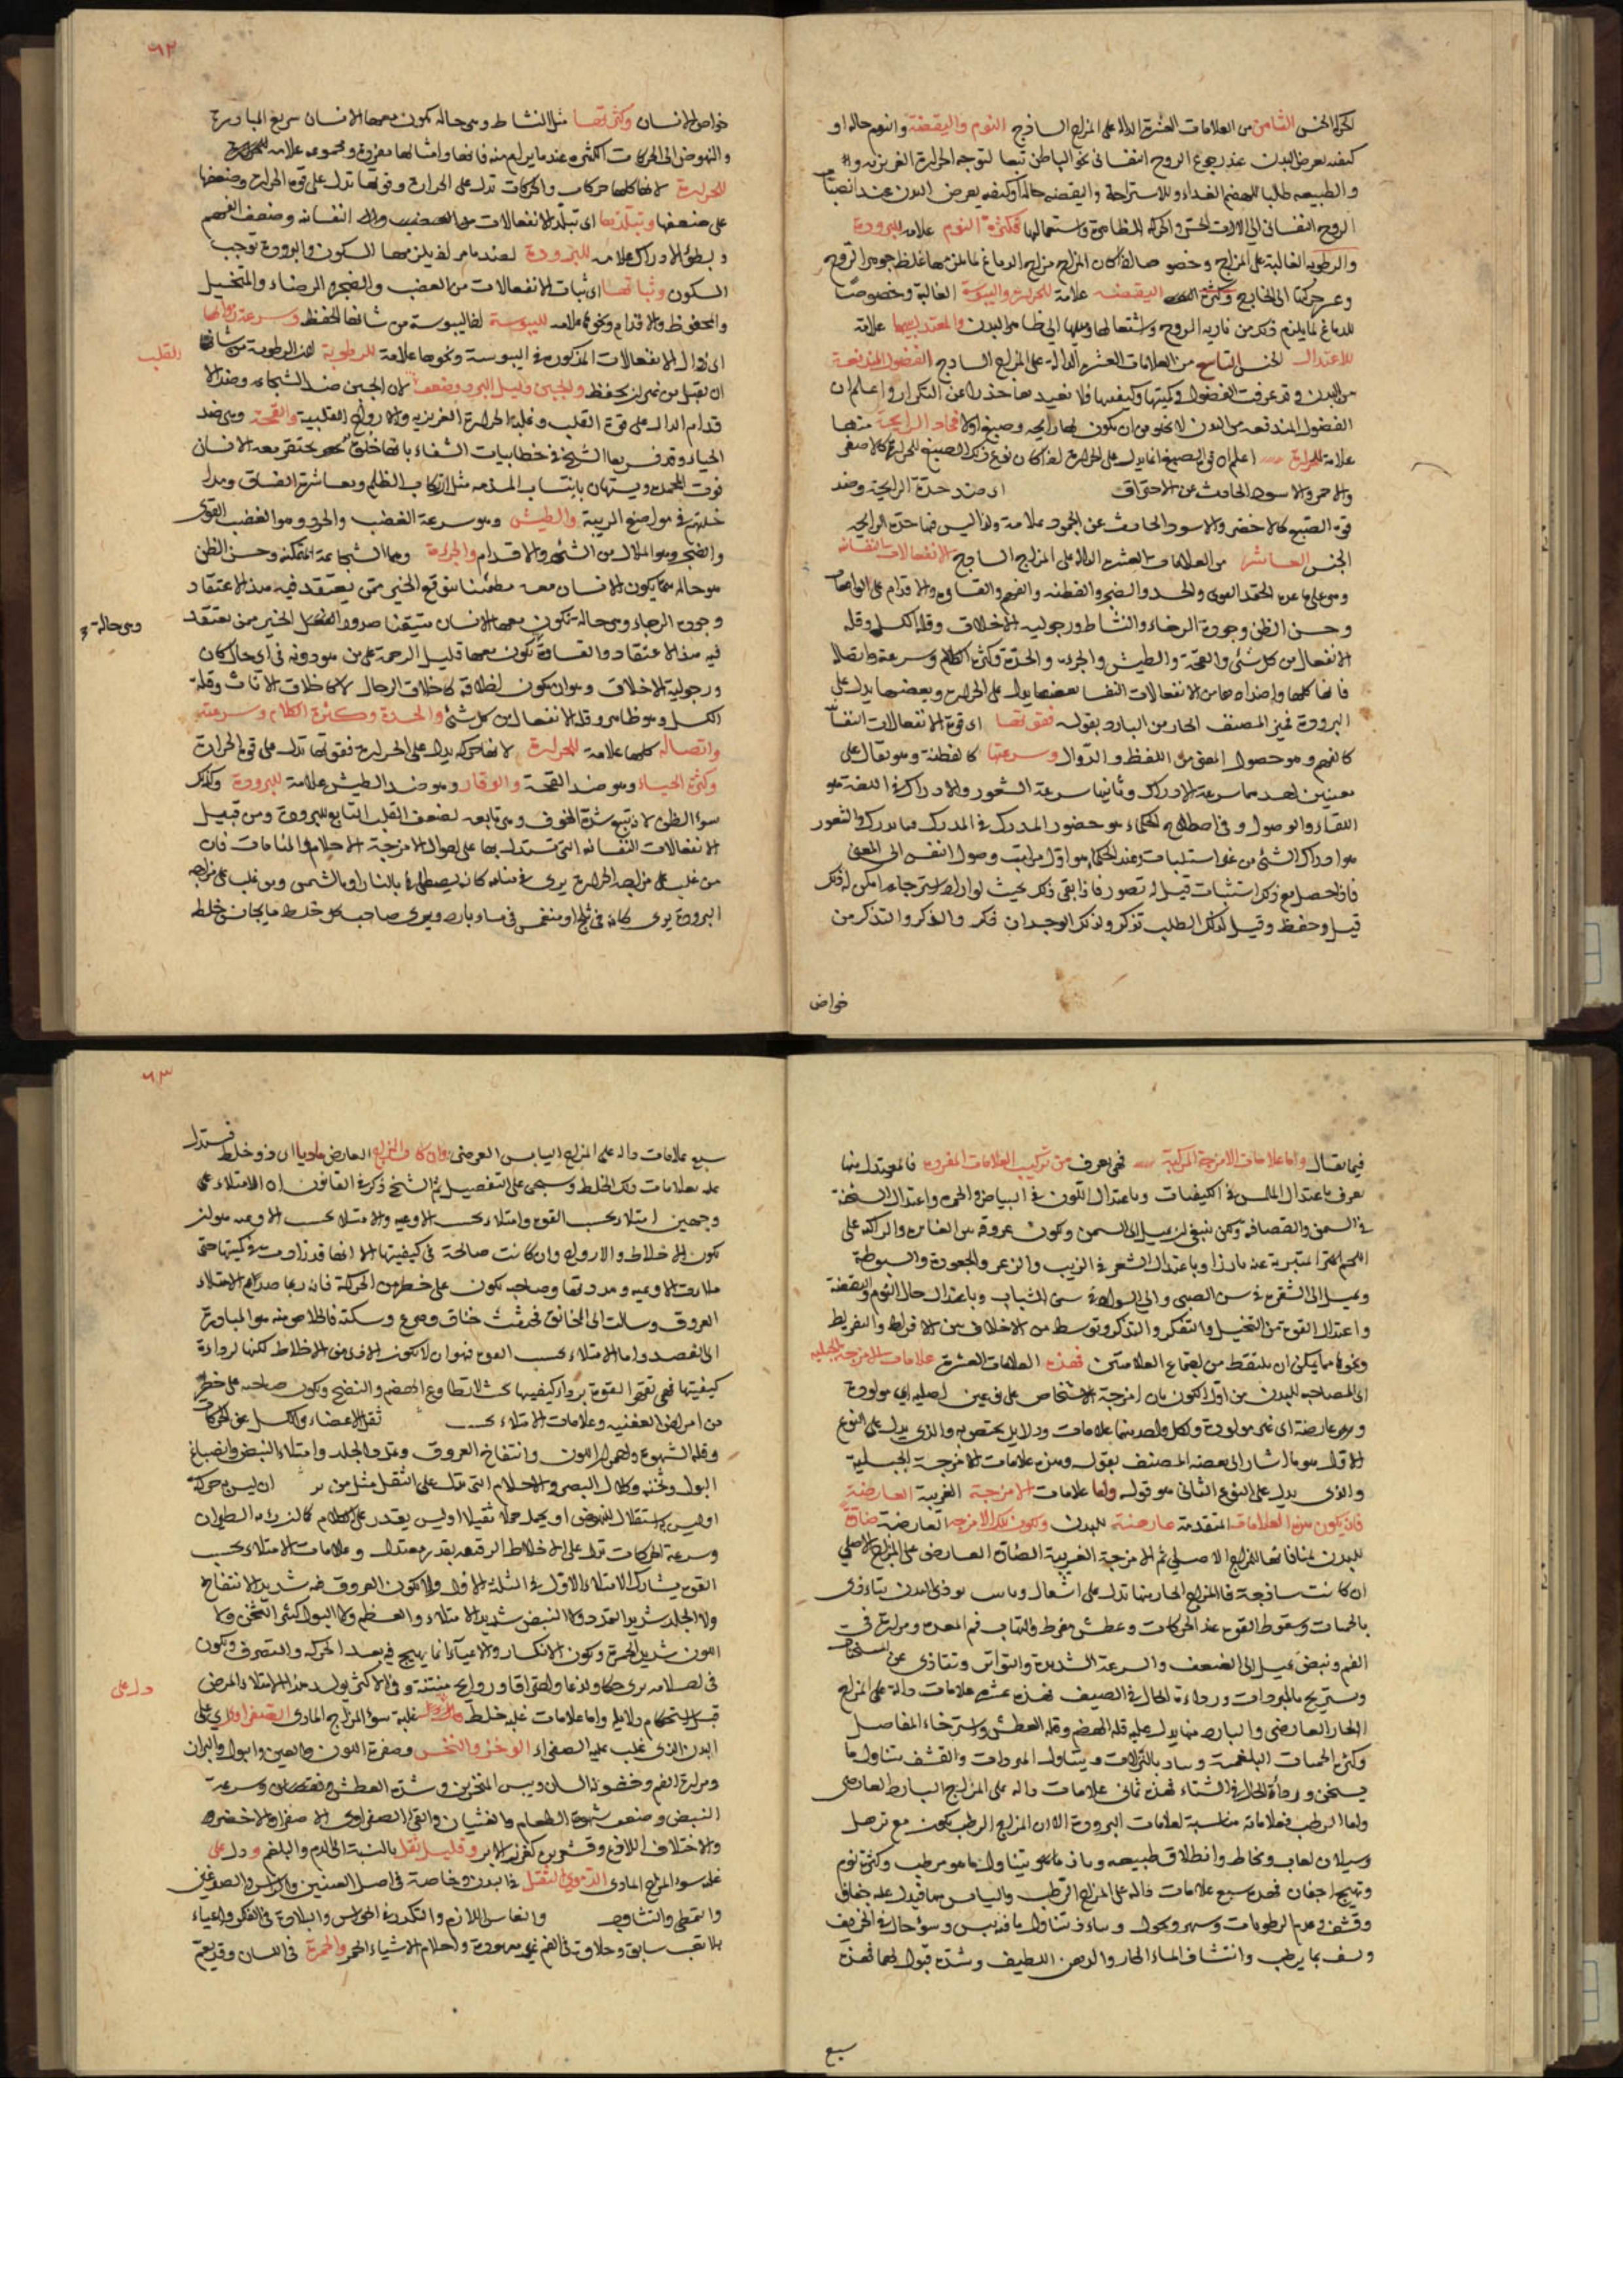 الجنس الثامن من العلامات العشرة الدالة على المزاج الساذج النوم واليقظة والنوم حالة او
كيفية تعرض للبدن عند رجوع الروح النفسانى نحو الباطن تبعا لتوجه الحرارة الغريزية
والطبيعة طلبا لهضم الغذاء وللاستراحة واليقظة حالة او كيفية يعرض للبدن عند انصباب
الروح النفسانى الى الات الحس والحركة الظاهرة واستعمالها فكثرة النوم علامة للبرودة
والرطوبة الغالبة على المزاج وخصوصا اذا كان المزاج مزاج الدماغ لما يلزمها غلظ جوهر الروح
وعن حركتها الى الخارج وكثرة اليقظة علامة للحرارة واليبوسة الغالبة وخصوصا
للدماغ لما يلزم ذلك من نارية الروح واشتعالها وميلها الى ظاهر البدن والمعتدل بينهما علامة
للاعتدال الجنس التاسع من العلامات العشرة الدالة على المزاج الساذج الفضول المندفعة
من البدن وقد عرفت الفضول وكميتها وكيفيتها فلا نعيدها حذرا عن التكرار واعلم ان
الفضول المندفعة من البدن لا تخلو من ان يكون لها رايحة وصبغ اولا فحاد الرايحة منها
علامة للحرارة اعلم ان قوى الصبغ انما يدل على الحرارة اذا كان نوع ذلك الصبغ للحرارة كالاصفر
والاحمر والاسود الحادث عن الاحتراق اى ضد حدة الرايحة وضد
قوى الصبغ كالاخضر والاسود الحادث عن الجمود علامة ولذا ليس فيها حدة الرايحة
الجنس العاشر من العلامات العشرة الدالة على المزاج الساذج الانفعالات النفسانية
وهى على ما عده الحقد القوى والحدة والضجر والفطنة والفهم والقساوة والاقدام على
وحسن الظن وجودة الرجاء والنشاط ورجولية الاخلاق وقلة الكسل وقلة
الانفعال من كل شئ والقحة والطيش والجرءة والحدة وكثرة الكلام وسرعته واتصاله
فانها كلها واضدادها من الانفعالات النفسا بعضها يدل على الحرارة وبعضها يدل على
البرودة فميز المصنف الحار من البارد بقوله فقوتها اى قوة الانفعالات
كالفهم وهو حصول المعنى من اللفظ والزوال وسرعتها كالفطنة وهو يقال على
معنيين احدهما سرعة الادراك وثانيها سرعة الشعور والادراك فى اللغة هو
اللقاء والوصول وفى اصطلاح الحكماء هو حضور المدرك فى المدرك والشعور
هو ادراك الشئ من غير استثبات عند الحكماء هو اول مراتب وصول النفس الى المعنى
فاذا حصل مع ذلك استثبات قيل له تصور فاذا بقى ذلك بحيث لو اراد استرجاعه امكن له ذلك
قيل وحفظ وقيل لذلك الطلب تذكر ولذلك الوجدان ذكر والذكر والتذكر من
خواص
٦٢
خواص الانسان وكثرتها مثل النشاط وهى حالة تكون معها الانسان سريع المبادرة
والنهوض الى الحركات الكثيرة عند ما يرام منه فانها وامثالها مفردة ومجموعة علامة
للحرارة لانها كلها حركات والحركات تدل على الحرارة وقوتها تدل على قوة الحرارة وضعفها
على ضعفها وتبلدها اى تبلد الانفعالات النفسانية وضعف الفهم
وبطئ الادراك علامة للبرودة لضد ما مر اذ يلزمها السكون والبرودة توجب
السكون وثباتها اى ثبات الانفعالات من الغضب والضجر والرضاء والمتخيل
والمحفوظ والاقدام ونحوها علامة لليبوسة اذ اليبوسة من شانها الحفظ وسرعة زوالها
اى زوال الانفعالات المذكورة فى اليبوسة ونحوها علامة للرطوبة لان الرطوبة من شانها
ان تقبل من غير ان تحفظ والجبن دليل البرد وضعف لان الجبن ضد الشجاعة وضد الا
القلب
قدام الدال على قوة القلب وغلبة الحرارة الغريزية والارواح القلبية والقحة وهى ضد
الحياء وقد فسرها الشيخ فى خطابيات الشفاء بانها خلق يحتقر معه الانسان
فوت المحمدة ويستهان باكتساب المذمة مثل ارتكاب الظلم ومعاشرة الفساق ومدا
خلتهم فى مواضع الريبة والطيش وهو سرعة الغضب والحرد وهو الغضب القوى
والضجر وهو الملال من الشئ والاقدام والجرءة وهما الشجاعة المتمكنة وحسن الظن
هو حالة مما يكون الانسان معه مطمئنا بتوقع الخير ممن يعتقد فيه هذا الاعتقاد
وجودة الرجاء وهى حالة تكون معها الانسان متيقنا صدور الخير ممن يعتقد
وهى حالة
فيه هذا الاعتقاد والقساوة تكون معها قليل الرحمة على من هو دونه فى اى حال كان
ورجولية الاخلاق وهو ان يكون اخلاقه كاخلاق الرجال لا كاخلاق الاناث وقلة
الكسل وهو ظاهر وقلة الانفعال من كل شئ والحدة وكثرة الكلام وسرعته
واتصاله كلها علامة للحرارة لانها حركة يدل على الحرارة فقوتها تدل على قوة الحرارة
وكثرة الحياء وهو ضد القحة والوقار وهو ضد الطيش علامة للبرودة وكذلك
سوء الظن لانه يتبع شدة الخوف وهى تابعة لضعف القلب التابع للبرودة ومن قبيل
الانفعالات النفسانية التى تستدل بها على احوال الامزجة الاحلام والمنامات فان
من غلب على مزاجه الحرارة يرى فى منامه كانه يصطلى بالنار او بالشمس ومن غلب على مزاجه
البرودة يرى كانه فى ثلج او منغمس فى ماء بارد ويرى صاحب كل خلط ما يجانس خلطه
فيما يقال واما علامات الامزجة المركبة فهى تعرف من تركيب العلامات المفردة فالمعتدل منها
يعرف باعتدال الملمس فى الكيفيات وباعتدال اللون فى البياض والحمرة واعتدال السحنة
فى السمن والقضافة ولكن ينبغى ان يميل الى السمن ويكون عروقه بين الغايرة والراكبة على
اللحم المتبرية عنه بارزا وباعتدال الشعر فى الزبب والزعر والجعودة والسبوطة
ويميل الى الشقرة فى سن الصبى والى السواد فى سن الشباب وباعتدال حال النوم واليقظة
واعتدال القوة من التخيل والتفكر والتذكر وتوسط من الاخلاق بين الافراط والتفريط
ونحوها مما يمكن ان يلتقط من اجتماع العلامتين فهذه العلامات العشرة علامات الامزجة الجبلية
اى المصاحبة للبدن من اول الكون فان امزجة الاشخاص على نوعين اصلية اى مولودة
وعارضة اى غير مولودة ولكل واحد منهما علامات ودلايل يختص به والذى يدل على النوع
الاول هو ما اشار الى بعضه المصنف بقوله وهذه علامات الامزجة الجبلية
والذى يدل على النوع الثانى هو قوله واما علامات الامزجة الغريبة العارضة
فان يكون هذه العلامات المتقدمة عارضة للبدن ويكون تلك الامزجة العارضة ضارة
للبدن لمنافاتها للمزاج الاصلى ثم الامزجة الغريبة الضارة العارضة على المزاج الاصلى
ان كانت ساذجة فالمزاج الحار منها تدل على اشعال يوذى البدن يتاذى
بالحميات وسقوط القوة عند الحركات وعطش مفرط والتهاب فم المعدة ومرارة فى
الفم ونبض يميل الى الضعف والسرعة الشديدة والتواتر وتتاذى عن المسخنات
ويستريح بالمبردات ورداءة الحال فى الصيف فهذه عشرة علامات دالة على المزاج
الحار العارضى والبارد منها يدل عليه قلة الهضم وقلة العطش واسترخاء المفاصل
وكثرة الحميات البلغمية وتاذ بالنزلات وبتناول المبردات والتشف بتناول ما
يسخن ورداءة الحال فى الشتاء فهذه ثمانى علامات دالة على المزاج البارد العارضى
واما الرطب فعلاماته مناسبة لعلامات البرودة الا ان المزاج الرطب يكون مع ترهل
وسيلان لعاب ومخاط وانطلاق طبيعة وتاذ بتناول ما هو مرطب وكثرة نوم
وتهيج اجفان فهذه سبع علامات دالة على المزاج الرطب واليابس منها فيدل عليه جفاف
وقشف وعدم الرطوبات وسهر ونحول وتاذ بتناول ما فيه يبس وسوء حال فى الخريف
وتشف بما يرطب وانتشاف الماء الحار والدهن اللطيف وشدة قبول لهما فهذه
سبع
٦٣
سبع علامات دالة على المزاج اليابس العرضى وان كان المزاج العارض ماديا اى ذو خلط فيستدل
عليه بعلامات ذلك الخلط وسيجئ على التفصيل ثم الشيخ ذكر فى القانون ان الامتلاء على
وجهين امتلاء بحسب القوة وامتلاء بحسب الاوعية والامتلاء بحسب الاوعية هو ان
يكون الاخلاط والارواح وان كانت صالحة فى كيفيتها الا انها قد زادت فى كميتها حتى
ملات الاوعية ومددتها وصاحبه يكون على خطر من الحركة فانه ربما صدع الامتلاء
العروق وسالت الى المخانق فحدثت خناق وصرع وسكتة فالخلاص منه هو المبادرة
الى الفصد واما الامتلاء بحسب القوة فهو ان لا يكون الاذى من الاخلاط لكنها لرداءة
كيفيتها فهى تقهر القوة برداءة كيفيتها بحيث لا تطاوع الهضم والنضج ويكون صاحبه على خطر
من امراض العفنية وعلامات الامتلاء بحسب ثقل الاعضاء والكسل عن الحركات
وقلة الشهوة واحمرار اللون وانتفاخ العروق وتمدد الجلد وامتلاء النبض وانصباغ
البول وثخنه وكلال البصر والاحلام التى تدل على الثقل مثل من ان ليس به حركة
او ليس به استقلال للنهوض او يحمل حملا ثقيلا او ليس يقدر على الكلام كما ان رؤية الطيران
وسرعة الحركات تدل على الاخلاط الرقيقة بقدر معتدل وعلامات الامتلاء بحسب
القوة يشارك الامتلاء الاول فى الثلاثة الاول ولا يكون العروق فيه شديد الانتفاخ
ولا الجلد شديد التمدد ولا النبض شديد الامتلاء والعظم ولا البول كثير الثخن ولا
اللون شديد الحمرة ويكون الانكسار والاعياء انما يهيج فيه بعد الحركة والتصرف ويكون
فى احلامه يرى حكا ولذعا واحتراقا وروايح منتنة وفى الاكثر يولد هذا الامتلاء المرض
قبل استحكام دلايله واما علامات غلبة خلط غلبة سوء المزاج المادى الصفراوى على
دل على
البدن الذى غلب عليه الصفراء الوخز والنخس وصفرة اللون والعين والبول والبراز
ومرارة الفم وخشونة اللسان ويبس المنخرين وشدة العطش وسرعة
النبض وضعف شهوة الطعام والغثيان والقئ الصفراوى الاصفر والاخضر
والاختلاف اللاذع وقشعريرة كغرز الابر وقليل ثقل بالنسبة الى الدم والبلغم ودل على
غلبة سوء المزاج المادى الدموى الثقل فى البدن وخاصة فى اصل العينين والراس والصدغين
والتمطى والتثاوب والنعاس اللازم والتكدر فى الحواس والبلادة فى الفكر واعياء
بلا تعب سابق وحلاوة فى الفم غير معهودة واحلام الاشياء الحمر والحمرة فى اللسان وقد يعم